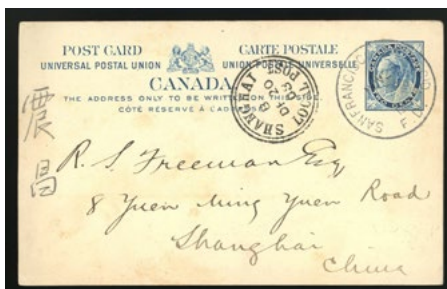 POST CARD CARTE POSTALE
UNIVERSAL POSTAL UNION UNION POSTALE UNIVERSELLE
CANADA
THE ADDRESS ONLY TO BE WRITTEN ON THIS SIDE.
CÔTÉ RÉSERVÉ À L'ADRESSE
SHANGHAI LOCAL POST
SAN FRANCISCO
震昌
R. S. Freeman Esq
8 Yuen Ming Yuen Road
Shanghai
China